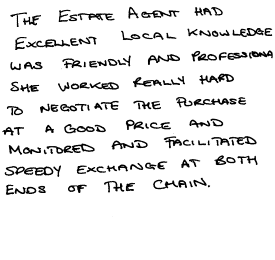 THE ESTATE AGENT HAD
EXCELLENT LOCAL KNOWLEDGE
WAS FRIENDLY AND PROFESSIONA
SHE WORKED REALLY HARD
TO NEGOTIATE THE PURCHASE
AT A GOOD PRICE AND
MONITORED AND FACILITATED
SPEEDY EXCHANGE AT BOTH
ENDS OF THE CHAIN.